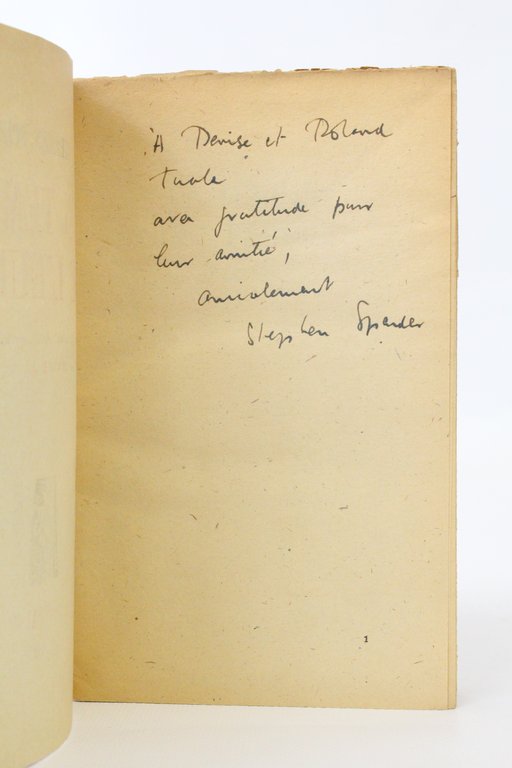 A Denise et Roland
Tuala
avec gratitude pour
leur amitié,
amicalement
Stephen Spender
1